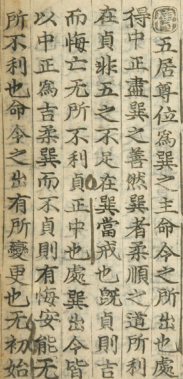 五居尊位爲巽之主命令之所出也處
得中正盡巽之善然巽者柔順之道所利
在貞非五之不足在巽當戒也旣貞則吉
而悔亡无所不利貞正中也處巽出令皆
以中正爲吉柔巽而不貞則有悔安能无
所不利也命令之出有所變更也无初始